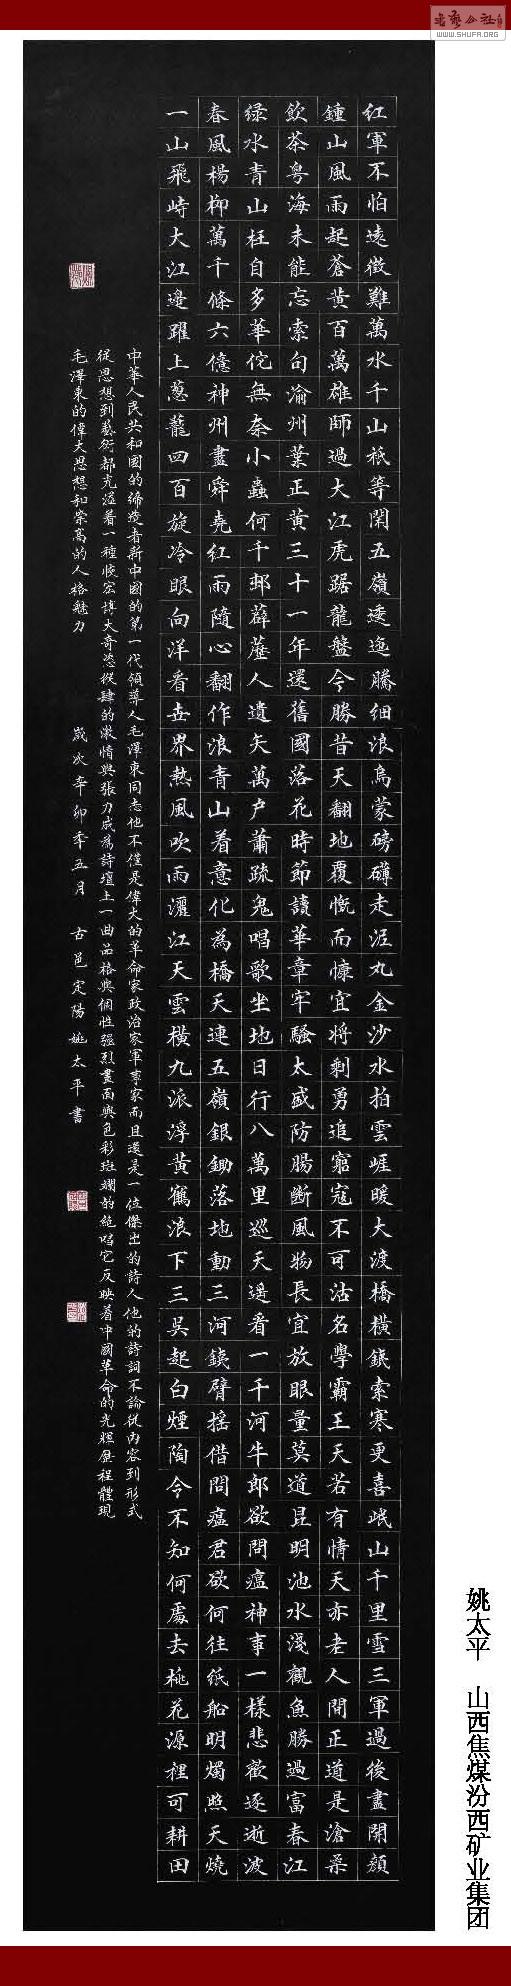 紅軍不怕遠徵難萬水千山祇等閑五嶺逶迤騰細浪烏蒙磅礴走泥丸金沙水拍雲崖暖大渡橋橫鐵索寒更喜岷山千里雪三軍過後盡開顏
鍾山風雨起蒼黃百萬雄師過大江虎踞龍盤今勝昔天翻地覆慨而慷宜將剩勇追窮寇不可沽名學霸王天若有情天亦老人間正道是滄桑
飲茶粵海未能忘索句渝州葉正黃三十一年還舊國落花時節讀華章牢騷太盛防腸斷風物長宜放眼量莫道昆明池水淺觀魚勝過富春江
綠水青山枉自多華佗無奈小蟲何千邨薜蘿人遺矢萬戶蕭疏鬼唱歌坐地日行八萬里巡天遙看一千河牛郎欲問瘟神事一樣悲歡逐逝波
春風楊柳萬千條六億神州盡舜堯紅雨隨心翻作浪青山着意化為橋天連五嶺銀鋤落地動三河鐵臂搖借問瘟君欲何往紙船明燭照天燒
一山飛峙大江邊躍上蔥蘢四百旋冷眼向洋看世界熱風吹雨灑江天雲橫九派浮黃鶴浪下三吳起白煙陶令不知何處去桃花源裡可耕田
中華人民共和國的締造者新中國的第一代領導人毛澤東同志他不僅是偉大的革命家政治家軍事家而且還是一位傑出的詩人他的詩詞不論從內容到形式
從思想到藝術都充溢着一種恢宏博大奇恣縱肆的激情與張力成為詩壇上一曲品格與個性強烈畫面與色彩斑斕的絕唱它反映着中國革命的光輝歷程體現
毛澤東的偉大思想和崇高的人格魅力
歲次辛卯年五月 古邑定陽姚太平書
姚太平 山西焦煤汾西矿业集团
WWW.SHUFA.ORG